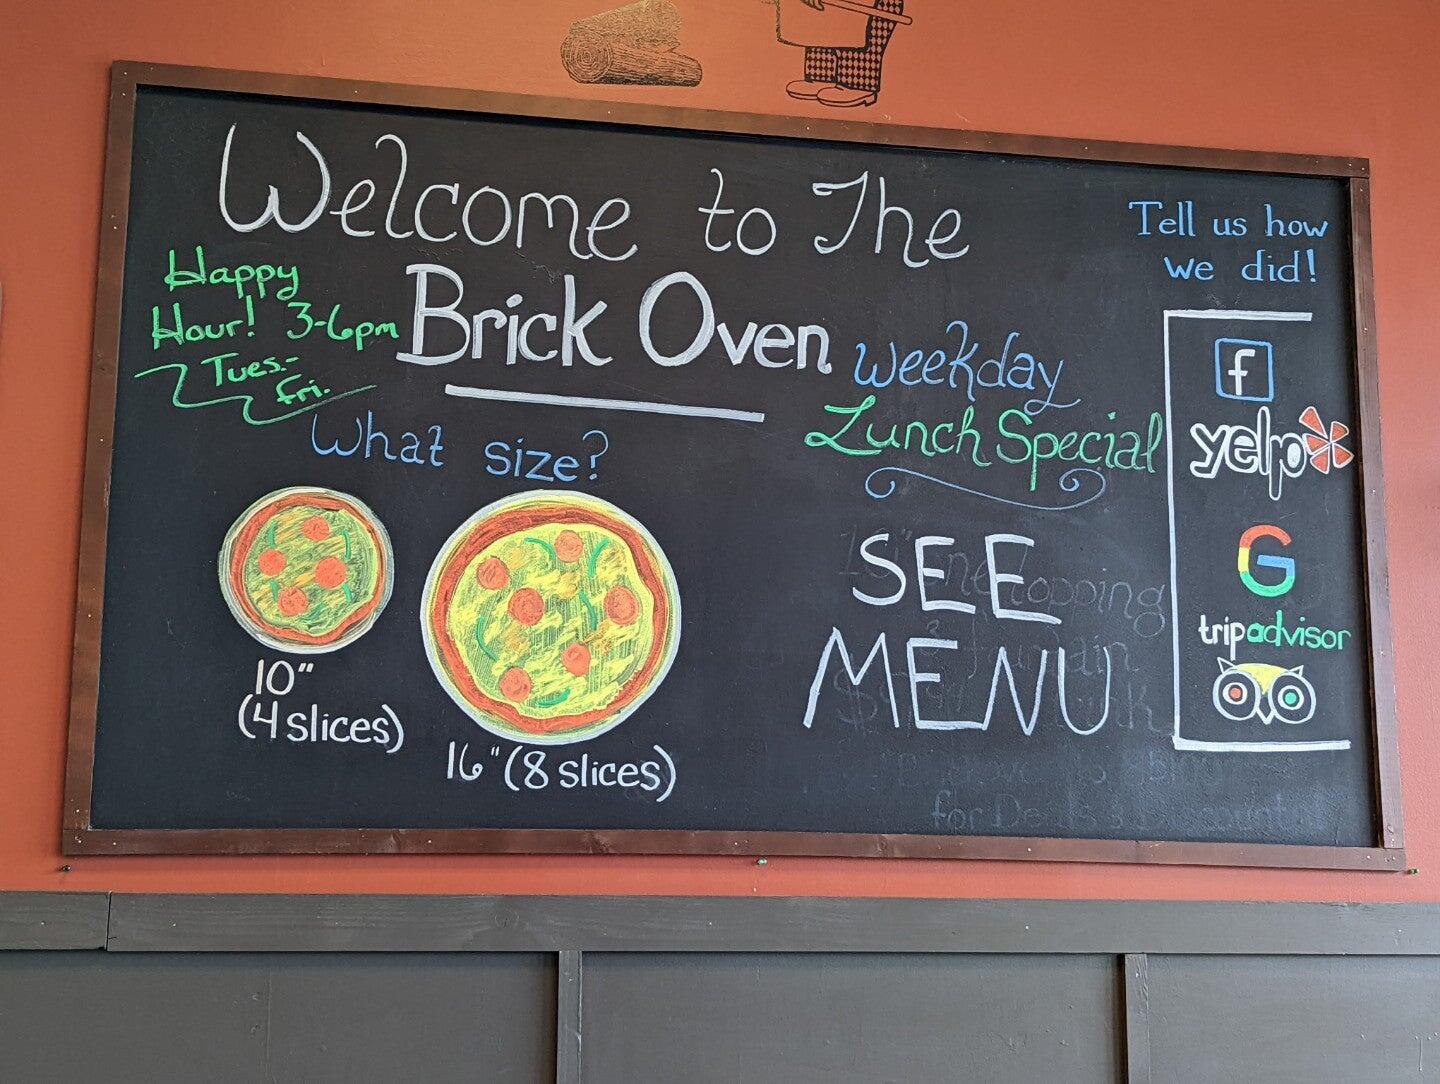 Welcome to The
Brick Oven
Happy
Hour! 3-6pm
Tues.-
Fri.
What size?
10"
(4 slices)
16" (8 slices)
Weekday
Lunch Special
SEE
MENU
Tell us how
we did!
f
yelp
G
tripadvisor